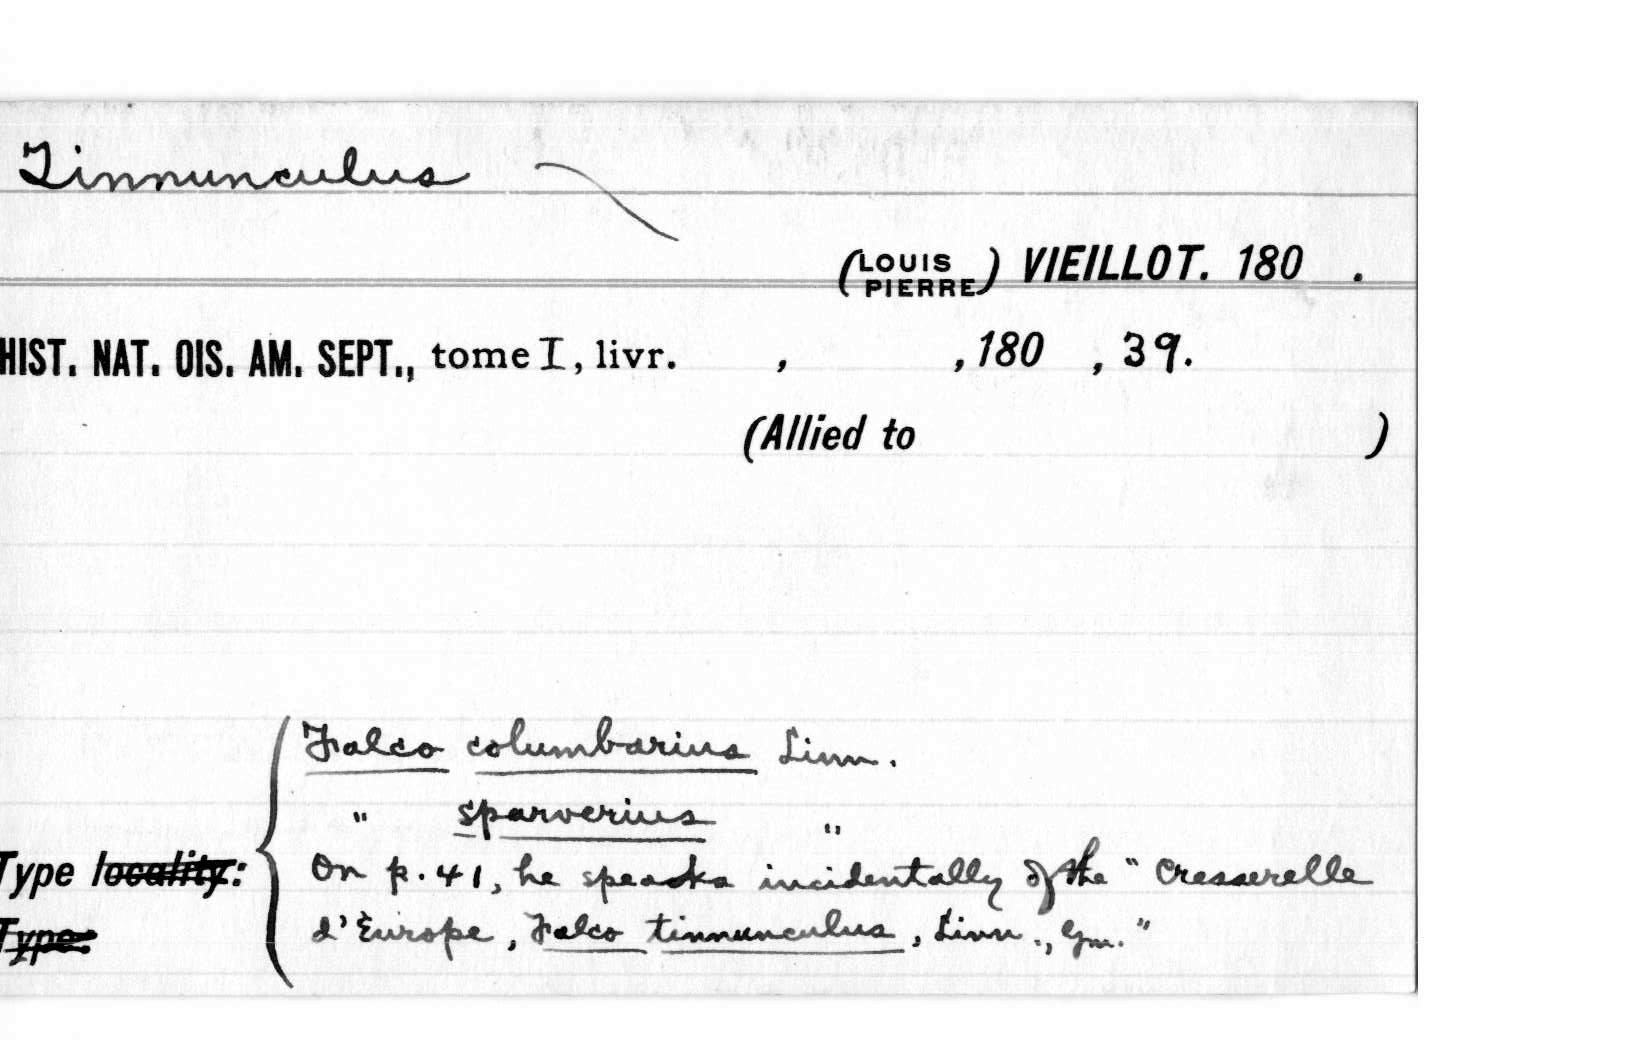 Tinnunculus
(LOUIS PIERRE) VIEILLOT. 180 .
HIST. NAT. OIS. AM. SEPT., tome I, livr. , , 180 , 39.
(Allied to )
Falco columbarius Linn.
" sparverius "
Type locality: On p. 41, he speaks incidentally of the "Cresserelle
Type: d'Europe, Falco tinnunculus, Linn., Gm."